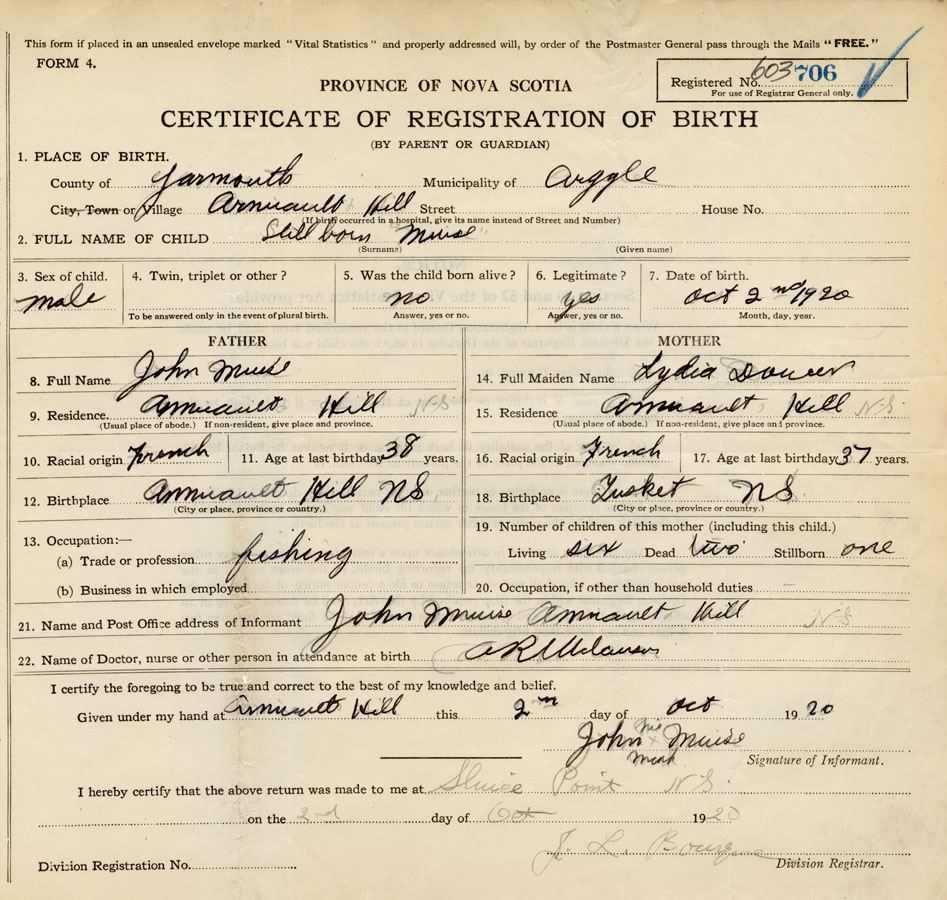 This form if placed in an unsealed envelope marked "Vital Statistics" and properly addressed will, by order of the Postmaster General pass through the Mails "FREE."
FORM 4.
Registered No. 603 706
For use of Registrar General only.
PROVINCE OF NOVA SCOTIA
CERTIFICATE OF REGISTRATION OF BIRTH
(BY PARENT OR GUARDIAN)
1. PLACE OF BIRTH.
County of Yarmouth Municipality of Argyle
City, Town or Village Amirault Hill Street House No.
(If birth occurred in a hospital, give its name instead of Street and Number)
2. FULL NAME OF CHILD Still born Muise
(Surname) (Given name)
3. Sex of child. 4. Twin, triplet or other? 5. Was the child born alive? 6. Legitimate? 7. Date of birth.
male no yes Oct 2nd 1920
To be answered only in the event of plural birth. Answer, yes or no. Answer, yes or no. Month, day, year.
FATHER MOTHER
8. Full Name John Muise 14. Full Maiden Name Lydia Doucet
9. Residence. Amirault Hill N-S 15. Residence Amirault Hill N-S.
(Usual place of abode.) If non-resident, give place and province. (Usual place of abode.) If non-resident, give place and province.
10. Racial origin French 11. Age at last birthday 38 years. 16. Racial origin French 17. Age at last birthday 37 years.
12. Birthplace Amirault Hill NS 18. Birthplace Tusket NS
(City or place, province or country.) (City or place, province or country.)
13. Occupation:— 19. Number of children of this mother (including this child.)
(a) Trade or profession fishing Living six Dead two Stillborn one
(b) Business in which employed 20. Occupation, if other than household duties —
21. Name and Post Office address of Informant John Muise Amirault Hill N-S
22. Name of Doctor, nurse or other person in attendance at birth
I certify the foregoing to be true and correct to the best of my knowledge and belief.
Given under my hand at Amirault Hill this 2nd day of Oct 1920
John his x mark Muise
Signature of Informant.
I hereby certify that the above return was made to me at Sluice Point N S.
on the 2nd day of Oct 1920
J. L. Bourque
Division Registration No. Division Registrar.